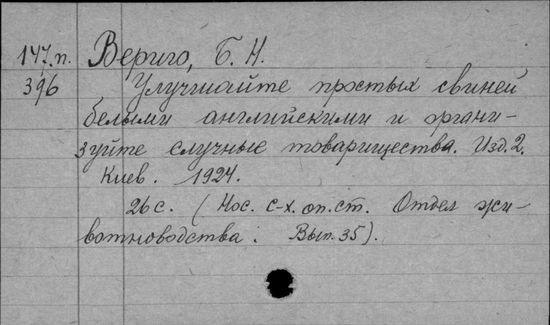 147.п. Вериго, Б. Н.
396 Улучшайте простых свиней
белыми английскими и органи-
зуйте случные товарищества. Изд. 2.
Киев. 1924.
26 с. (Нос. с-х. оп. ст. Отдел жи-
вотноводства: Вып. 35).